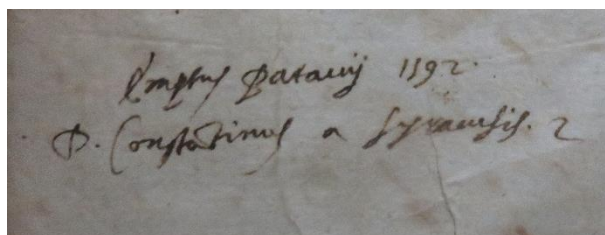 Emptus Patavij 1592.
D. Constantinus a Syracusis. 2